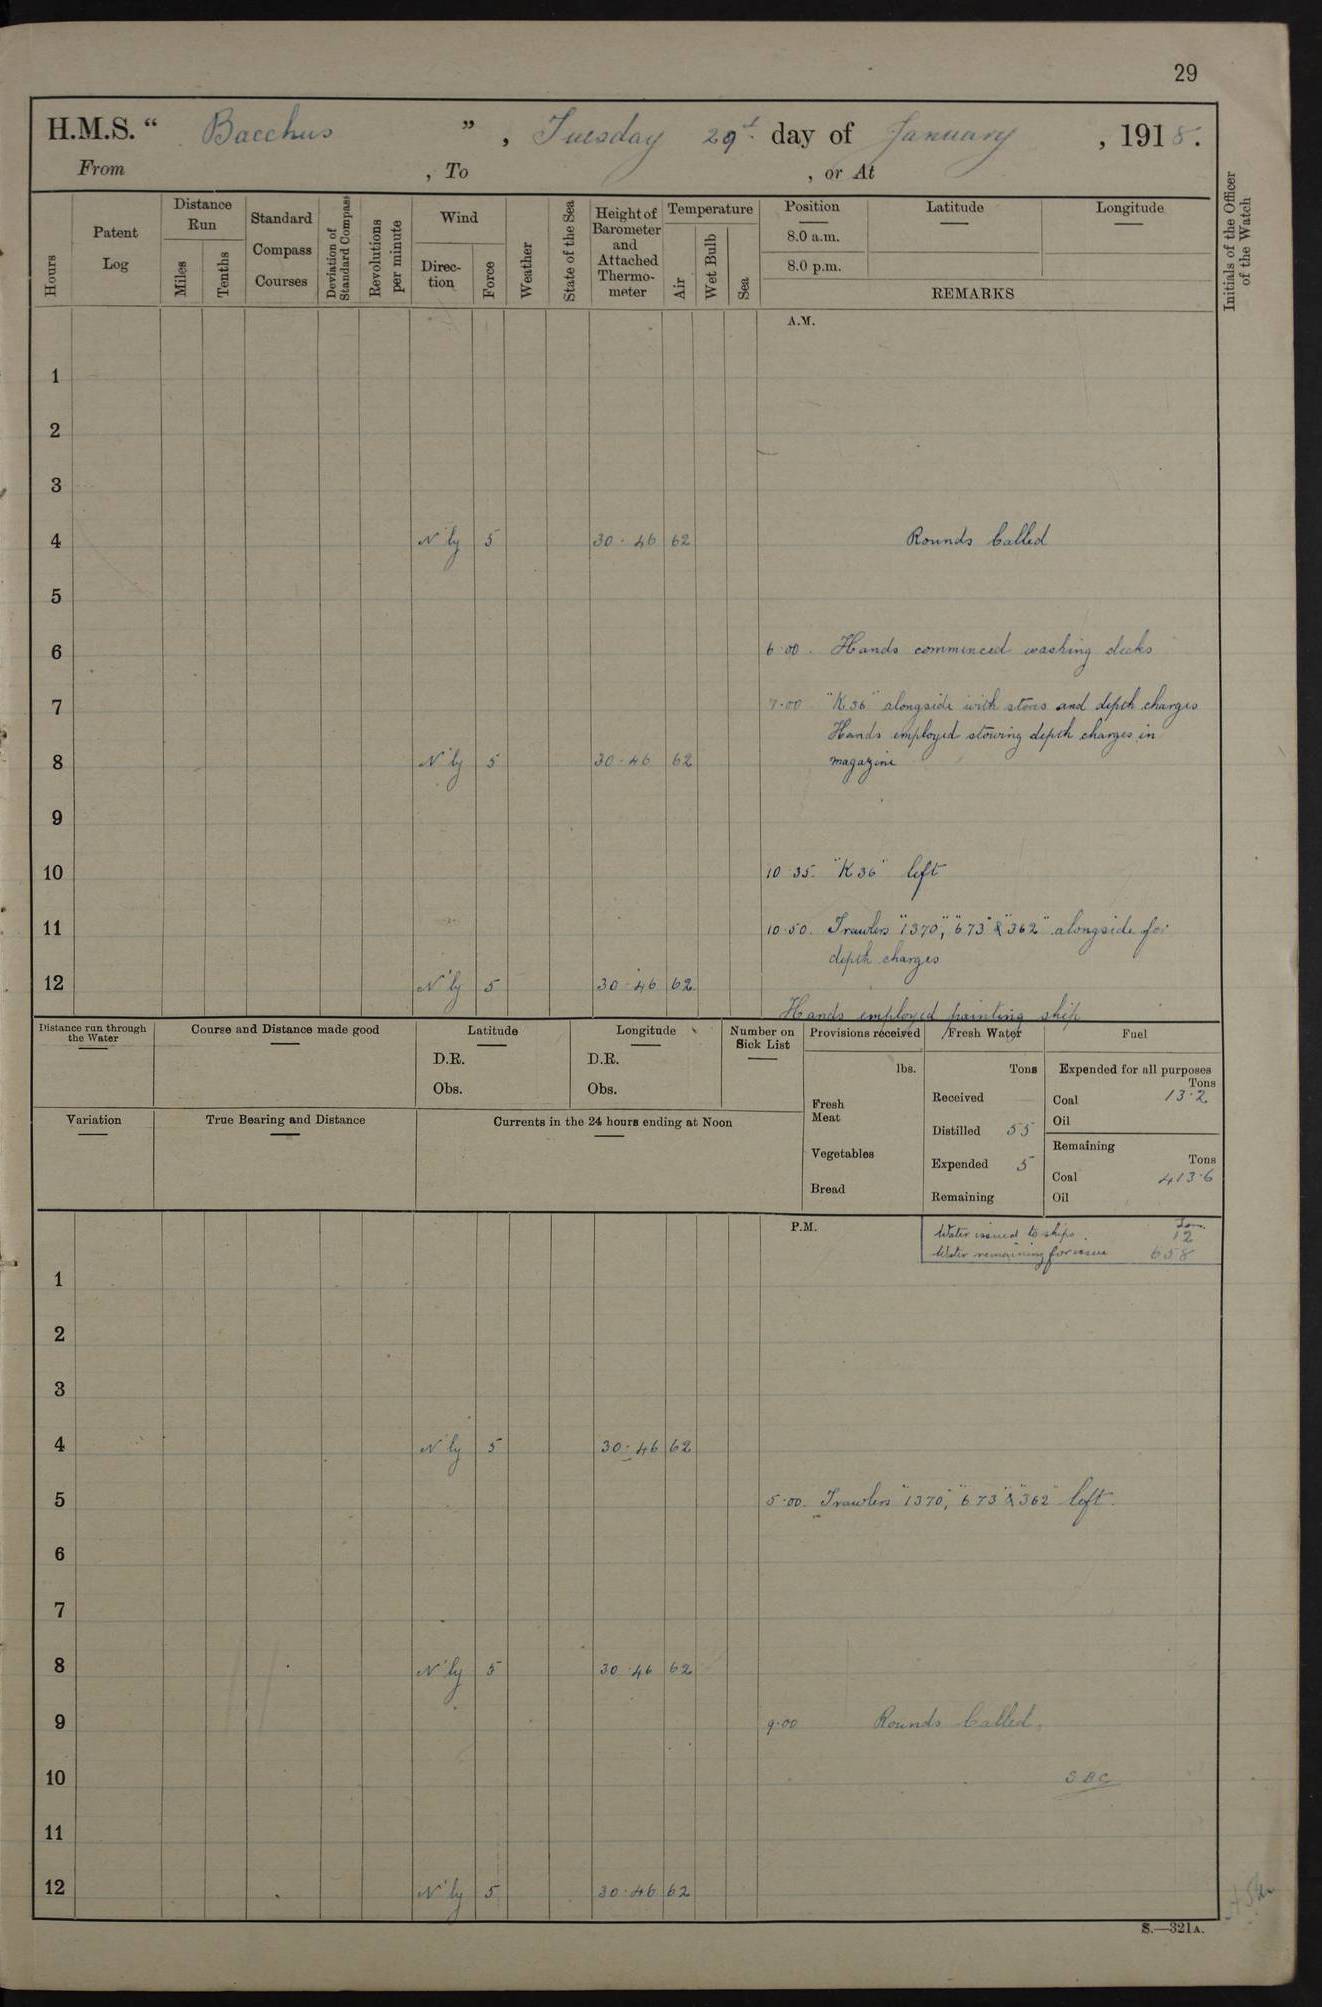 29
H.M.S. “ Bacchus ” , Tuesday 29th day of January , 1918.
From , To , or At
Hours
Patent Log
Distance Run
Miles
Tenths
Standard Compass Courses
Deviation of Standard Compass
Revolutions per minute
Wind
Direc-tion
Force
Weather
State of the Sea
Height of Barometer and Attached Thermo-meter
Temperature
Air
Wet Bulb
Sea
Position Latitude Longitude
8.0 a.m.
8.0 p.m.
REMARKS
Initials of the Officer of the Watch
A.M.
1
2
3
4 N'ly 5 30·46 62 Rounds Called
5
6 6·00. Hands commenced washing decks
7 7·00 "K36" alongside with stores and depth charges
Hands employed stowing depth charges in
8 N'ly 5 30·46 62 magazine
9
10 10·35. "K36" left
11 10·50. Trawlers "1370", "673" & "362" alongside for
depth charges
12 N'ly 5 30·46 62.
Hands employed painting ship
Distance run through the Water
Course and Distance made good
Latitude
D.R.
Obs.
Longitude
D.R.
Obs.
Number on Sick List
Provisions received
lbs.
Fresh Meat
Vegetables
Bread
Fresh Water
Tons
Received
Distilled 55
Expended 5
Remaining
Fuel
Expended for all purposes
Tons
Coal 13·2
Oil
Remaining
Tons
Coal 413·6
Oil
Variation
True Bearing and Distance
Currents in the 24 hours ending at Noon
P.M.
Tons
Water issued to ships. 12
Water remaining for issue 658
1
2
3
4 N'ly 5 30·46 62
5 5·00. Trawlers "1370", "673" & "362" left.
6
7
8 N'ly 5 30·46 62
9 9·00 Rounds Called.
10
11
12 N'ly 5 30·46 62
S.—321A.